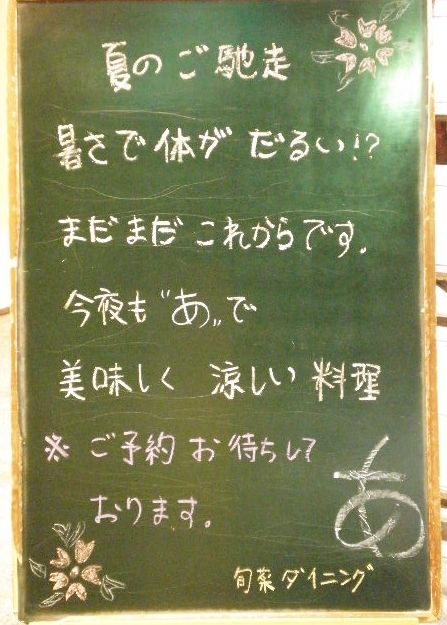 夏のご馳走
暑さで体がだるい!?
まだまだこれからです。
今夜も〝あ〟で
美味しく 涼しい 料理
※ ご予約お待ちして
おります。
あ
旬菜ダイニング